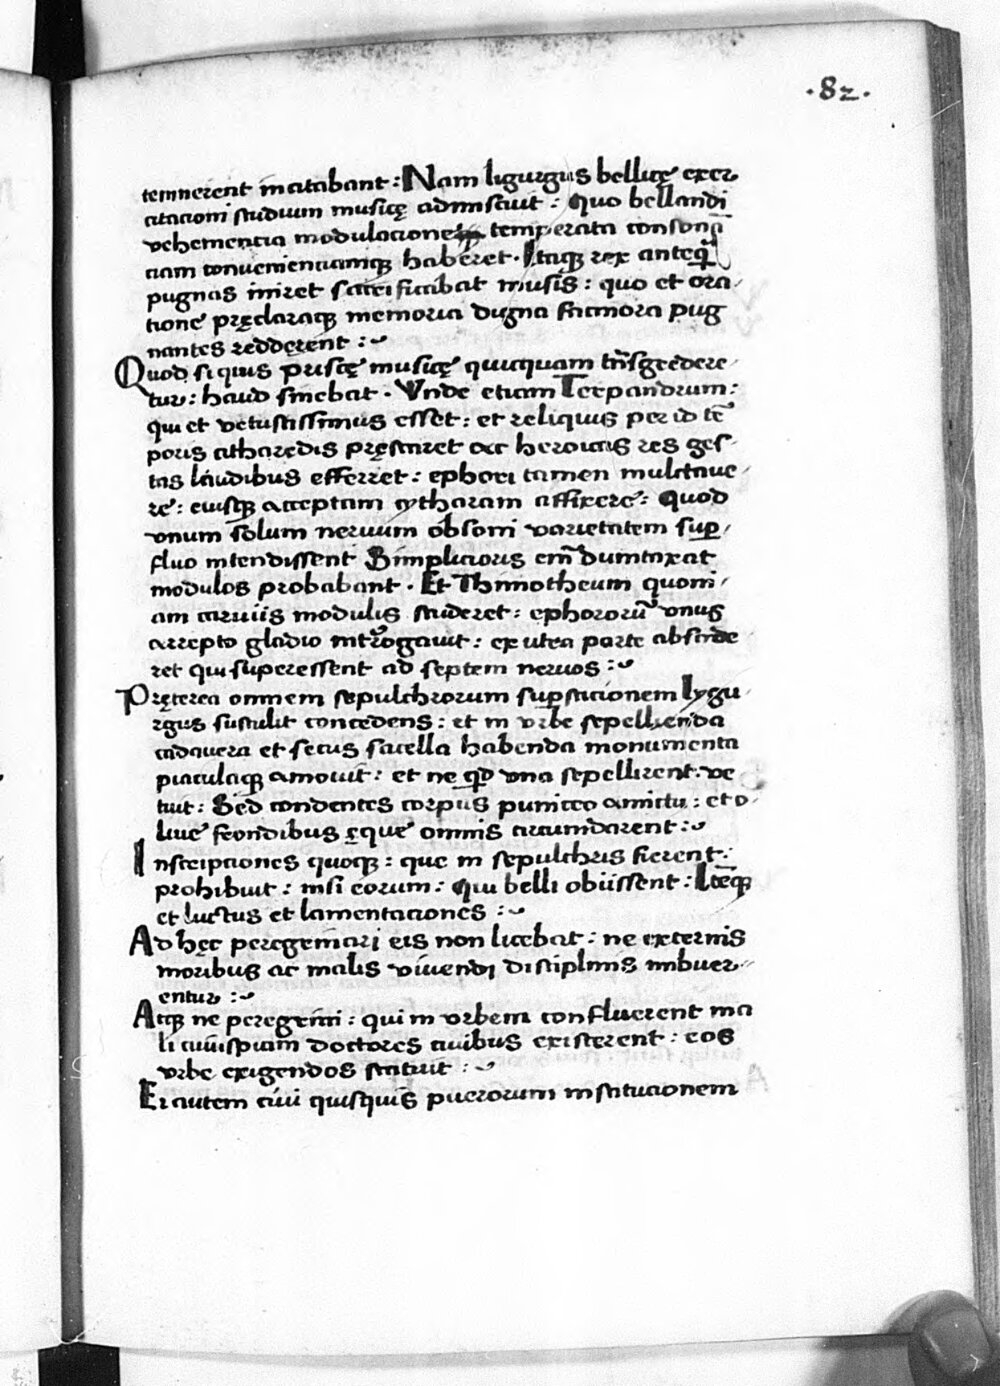 ·82·
temnerent incitabant : Nam ligurgus bellicę exer
citacioni studium musicę admiscuit : Quo bellandi
vehementia modulacione temperata consonā
ciam convenienciamq̨ haberet · Itaq̨ rex anteq̄
pugnas iniret sacrificabat musis : quo et ora
tione pręclaraq̨ memoria digna facinora pug
nantes redderent :~
Quod si quis priscę musicę quicquam trāsgredere
tur : haud sinebat · Vnde etiam Terpandrum :
qui et vetustissimus esset : et reliquis per id tē
poris citharedis pręstaret ac heroicas res ges
tas laudibus efferret : ephori tamen mulctave
re : eiusq̨ acceptam cytharam affixere : Quod
vnum solum nervum obsoni varietatem sup
fluo intendissent Simplicioris em̄ dumtaxat
modulos probabant · Et Thimotheum quoni
am carviis modulis studeret : ephororū vnus
arrepto gladio intrōgavit : ex utra parte abscide
ret qui superessent ad septem nervos :~
Pręterea omnem sepulchrorum supsticionem lygu
rgus sustulit concedens : et in vrbe sepellienda
cadavera et secus sacella habenda monumenta
piaculaq̨ amovit : et ne qd vna sepellirent : ve
tuit : Sed condentes corpus puniceo amictu : et o
live frondibus ęque omnis circumdarent :~
Inscripciones quoq̨ : que in sepulchris fierent :
prohibuit : nisi eorum : Qui belli obiissent : Itēq̨
et luctus et lamentaciones :~
Ad hęc peregrinari eis non licebat : ne externis
moribus ac malis vivendi disciplinis imbuer
entur :~
Atq̨ ne peregrini : qui in vrbem confluerent ma
li cuiuspiam doctores civibus existerent : eos
vrbe exigendos statuit :~
Ei autem civi quisquis puerorum institucionem